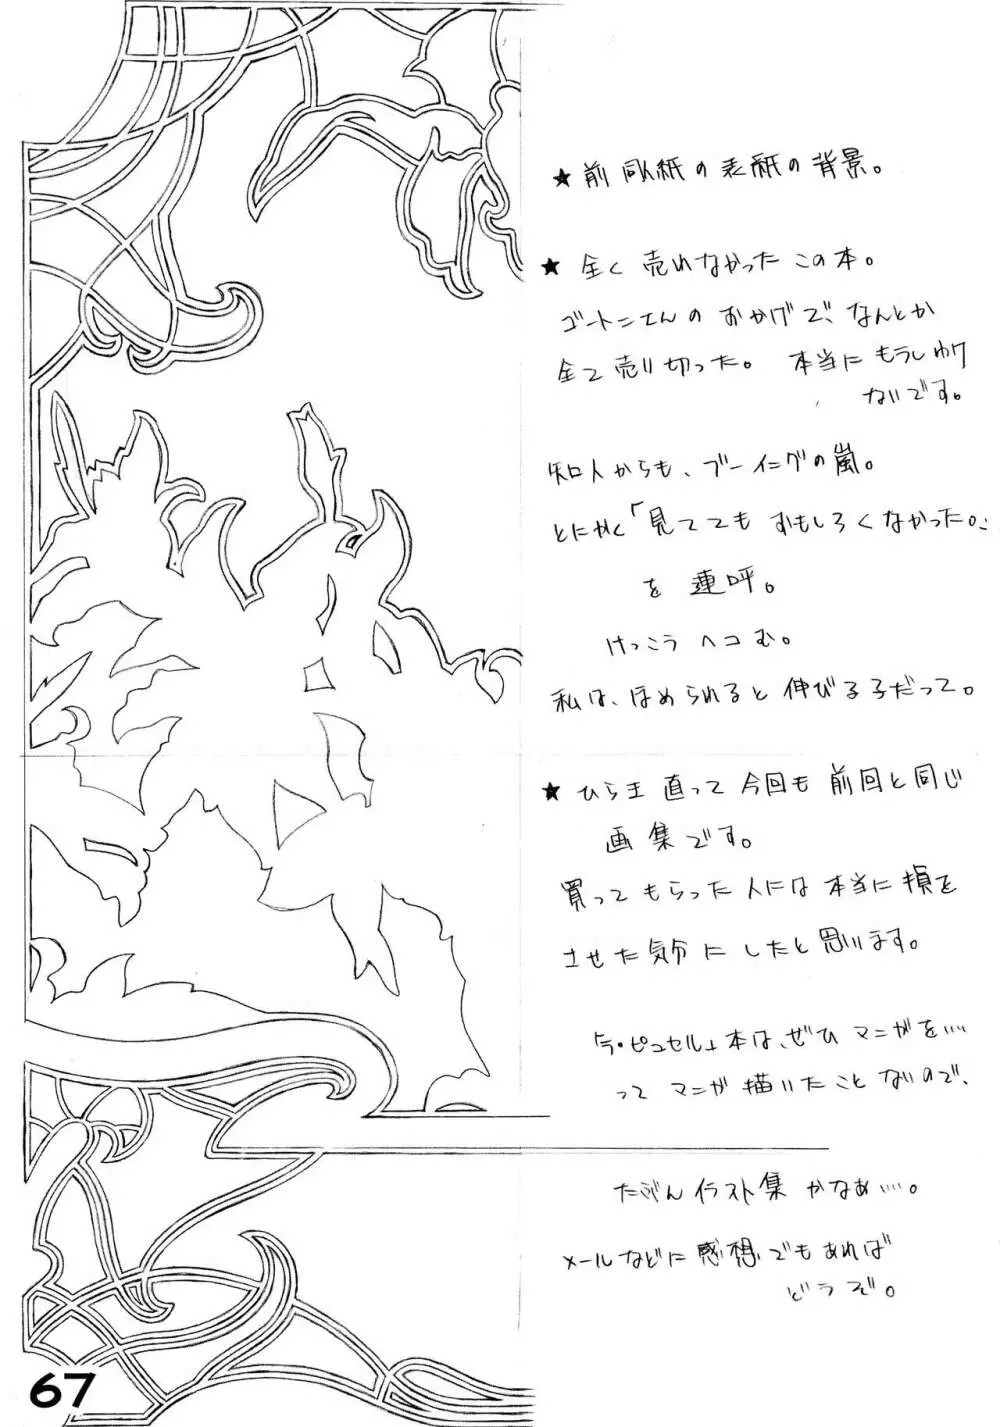 ★前同人紙の表紙の背景。
★全く売れなかったこの本。
ゴートニさんのおかげで、なんとか
全て売り切った。 本当にもうしわけ
ないです。
知人からも、ブーイングの嵐。
とにかく「見ててもおもしろくなかった。」
を連呼。
けっこうヘコむ。
私は、ほめられると伸びる子だって。
★ひらき直って今回も前回と同じ
画集です。
買ってもらった人には本当に損を
させた気分にしたと思います。
「ラ・ピュセル」本は、ぜひマンガを‥‥
ってマンガ描いたことないので、
たぶんイラスト集かなぁ‥‥。
メールなどに感想でもあれば
どうぞ。
67